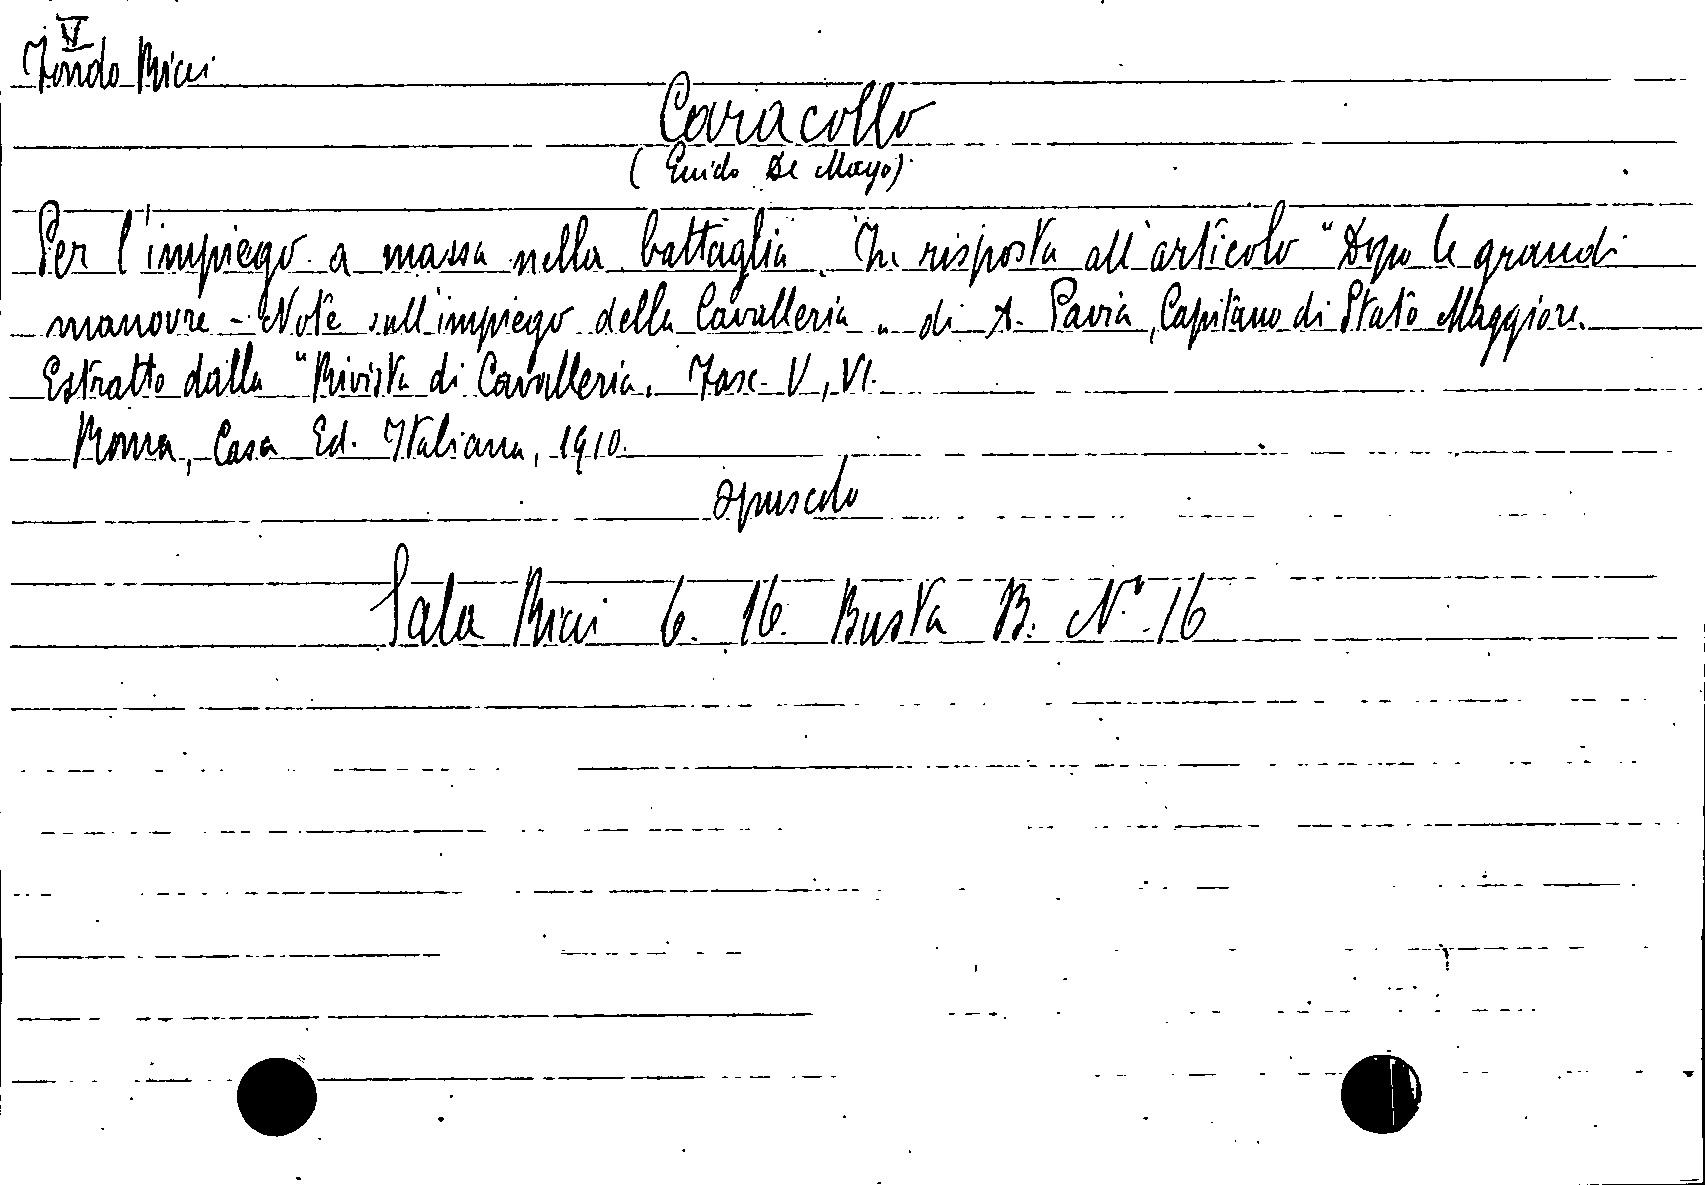 V
Fondo Ricci
Caracollo
(Guido De Mayo)
Per l'impiego a massa nella battaglia. In risposta all'articolo "Dopo le grandi
manovre - Note sull'impiego della Cavalleria „ di A. Pavia, Capitano di Stato Maggiore.
Estratto dalla "Rivista di Cavalleria. Fasc. V, VI.
Roma, Casa Ed. Italiana, 1910.
opuscolo
Sala Ricci 6. 16. Busta B. N° 16